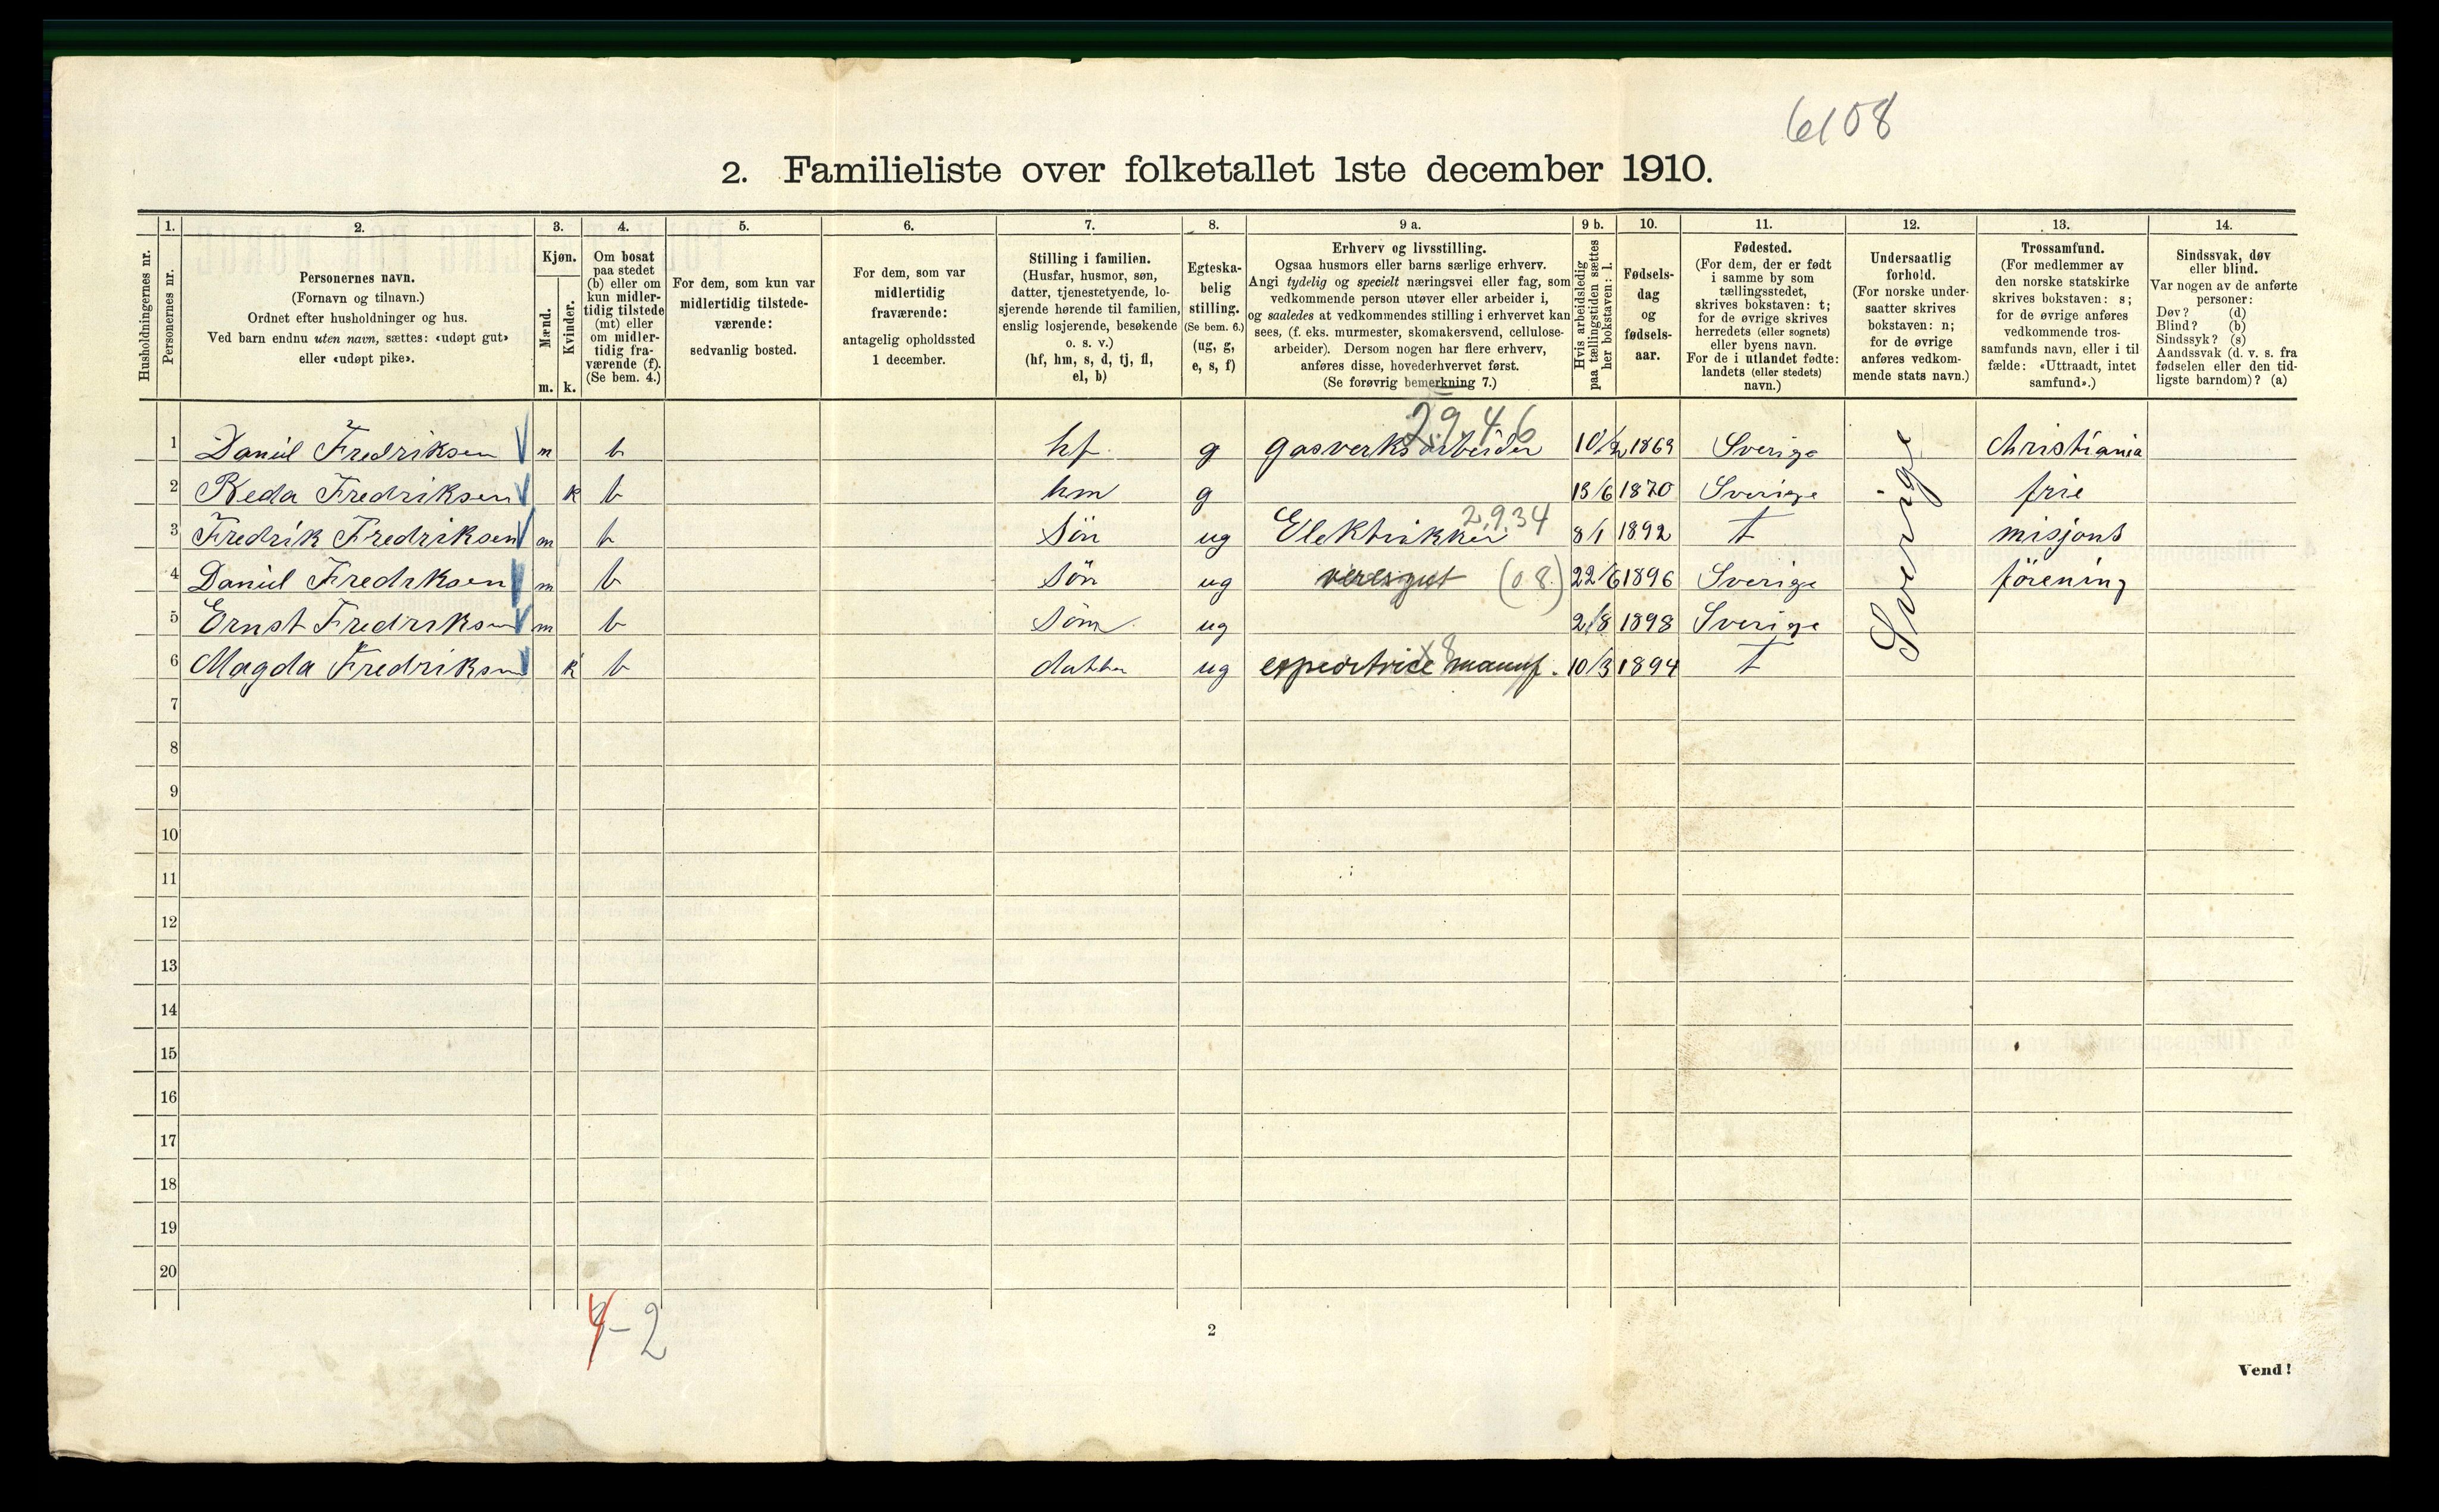 6108
2. Familieliste over folketallet 1ste december 1910.
Husholdningernes nr.
1.
Personernes nr.
2.
Personernes navn.
(Fornavn og tilnavn.)
Ordnet efter husholdninger og hus.
Ved barn endnu uten navn, sættes: «udøpt gut»
eller «udøpt pike».
3.
Kjøn.
Mænd.
Kvinder.
m. k.
4.
Om bosat
paa stedet
(b) eller om
kun midler-
tidig tilstede
(mt) eller
om midler-
tidig fra-
værende (f).
(Se bem. 4.)
5.
For dem, som kun var
midlertidig tilstede-
værende:
sedvanlig bosted.
6.
For dem, som var
midlertidig
fraværende:
antagelig opholdssted
1 december.
7.
Stilling i familien.
(Husfar, husmor, søn,
datter, tjenestetyende, lo-
sjerende hørende til familien,
enslig losjerende, besøkende
o. s. v.)
(hf, hm, s, d, tj, fl,
el, b)
8.
Egteska-
belig
stilling.
(Se bem. 6.)
(ug, g,
e, s, f)
9 a.
Erhverv og livsstilling.
Ogsaa husmors eller barns særlige erhverv.
Angi tydelig og specielt næringsvei eller fag, som
vedkommende person utøver eller arbeider i,
og saaledes at vedkommendes stilling i erhvervet kan
sees, (f. eks. murmester, skomakersvend, cellulose-
arbeider). Dersom nogen har flere erhverv,
anføres disse, hovederhvervet først.
(Se forøvrig bemerkning 7.)
9 b.
Hvis arbeidsledig
paa tællingstiden sættes
her bokstaven: l.
10.
Fødsels-
dag
og
fødsels-
aar.
11.
Fødested.
(For dem, der er født
i samme by som
tællingsstedet,
skrives bokstaven: t;
for de øvrige skrives
herredets (eller sognets)
eller byens navn.
For de i utlandet fødte:
landets (eller stedets)
navn.)
12.
Undersaatlig
forhold.
(For norske under-
saatter skrives
bokstaven: n;
for de øvrige
anføres vedkom-
mende stats navn.)
13.
Trossamfund.
(For medlemmer av
den norske statskirke
skrives bokstaven: s;
for de øvrige anføres
vedkommende tros-
samfunds navn, eller i til
fælde: «Uttraadt, intet
samfund».)
14.
Sindssvak, døv
eller blind.
Var nogen av de anførte
personer:
Døv? (d)
Blind? (b)
Sindssyk? (s)
Aandssvak (d. v. s. fra
fødselen eller den tid-
ligste barndom)? (a)
29.46
1 Daniel Fredriksen m b hf. g gasverksarbeider 10/2 1869 Sverige Christiania
2 Beda Fredriksen k b hm g 13/6 1870 Sverige frie
2.9.34
3 Fredrik Fredriksen m b Sön ug Elektrikker 8/1 1892 t misjons
4 Daniel Fredriksen m b Sön ug (0 8.) 22/6 1896 Sverige förening
5 Ernst Fredriksen m b Sön ug 2/8 1898 Sverige
x8
6 Magda Fredriksen k b datter ug expeditrice manuf. 10/3 1894 t
Sverige
7
8
9
10
11
12
13
14
15
16
17
18
19
20
4-2
2
Vend!